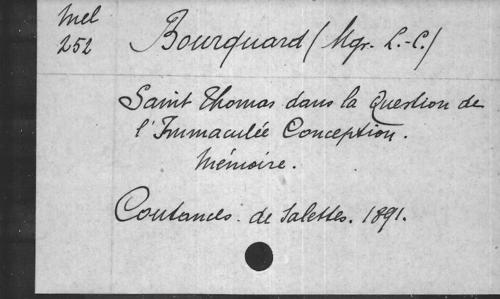 Mel
252
Bourquard (Mgr. L.-C.)
Saint Thomas dans la Question de
l'Immaculée Conception.
Mémoire.
Coutances. de Salettes. 1891.